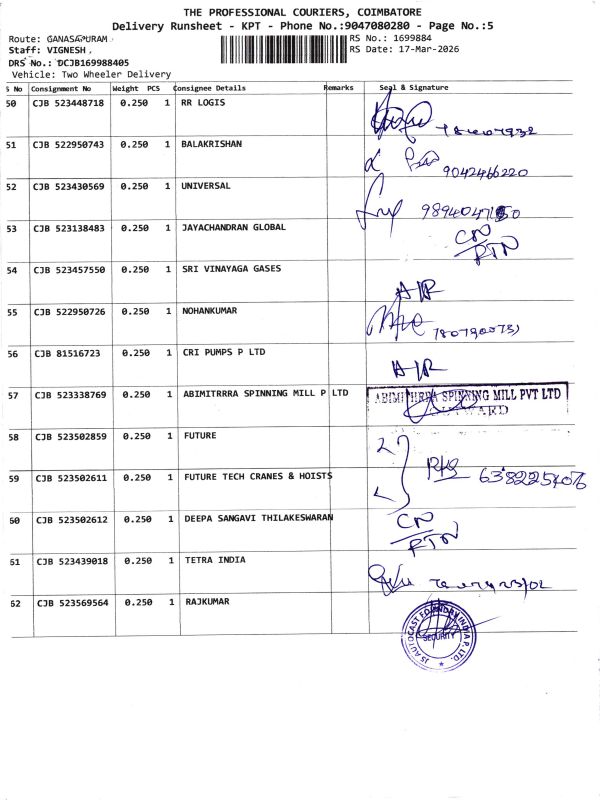 THE PROFESSIONAL COURIERS, COIMBATORE
Delivery Runsheet - KPT - Phone No.:9047080280 - Page No.:5
Route: GANASAPURAM
RS No.: 1699884
Staff: VIGNESH .
RS Date: 17-Mar-2026
DRS No.: DCJB169988405
Vehicle: Two Wheeler Delivery
S No Consignment No Weight PCS Consignee Details Remarks Seal & Signature
50 CJB 523448718 0.250 1 RR LOGIS
51 CJB 522950743 0.250 1 BALAKRISHAN
9042466220
52 CJB 523430569 0.250 1 UNIVERSAL
53 CJB 523138483 0.250 1 JAYACHANDRAN GLOBAL
CN
RTN
54 CJB 523457550 0.250 1 SRI VINAYAGA GASES
A/R
55 CJB 522950726 0.250 1 NOHANKUMAR
56 CJB 81516723 0.250 1 CRI PUMPS P LTD
A/R
57 CJB 523338769 0.250 1 ABIMITRRRA SPINNING MILL P LTD
ABIMITHRRA SPINNING MILL PVT LTD
58 CJB 523502859 0.250 1 FUTURE
59 CJB 523502611 0.250 1 FUTURE TECH CRANES & HOISTS
6382254076
60 CJB 523502612 0.250 1 DEEPA SANGAVI THILAKESWARAN
CN
RTN
61 CJB 523439018 0.250 1 TETRA INDIA
62 CJB 523569564 0.250 1 RAJKUMAR
JS AUTOCAST FOUNDRY INDIA P. LTD.
SECURITY